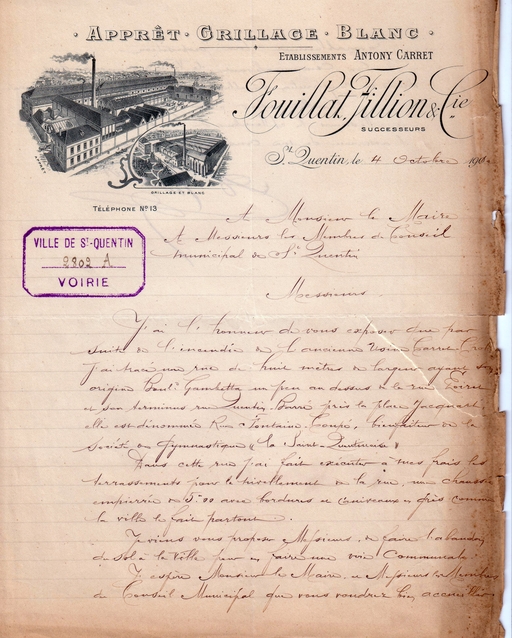 APPRÊT · GRILLAGE · BLANC
ETABLISSEMENTS ANTONY CARRET
Fouillat, Fillion & Cie
SUCCESSEURS
St Quentin, le 4 Octobre 190
GRILLAGE ET BLANC
TÉLÉPHONE No 13
VILLE DE St-QUENTIN
2802 A
VOIRIE
A Monsieur le Maire
A Messieurs les Membres du Conseil
Municipal de St Quentin
Messieurs
J'ai l'honneur de vous exposer que par
suite de l'incendie de l'ancienne Usine Carret
j'ai tracé une rue de huit mètres de largeur ayant son
origine Boul. Gambetta un peu au dessus de la rue
et son terminus rue Quentin Barré près la place Jacquart
elle est dénommée Rue Fontaine Coupé, bienfaiteur de la
Société de Gymnastique « la Saint-Quentinoise »
Dans cette rue j'ai fait exécuter à mes frais les
terrassements pour le nivellement de la rue, une chaussée
empierrée de 5m00 avec bordures et caniveaux en grès comme
la ville le fait partout.
Je viens vous proposer Messieurs, de faire l'abandon
du sol à la Ville pour en faire une voie Communale.
J'espère Monsieur le Maire, et Messieurs les Membres
du Conseil Municipal que vous voudrez bien